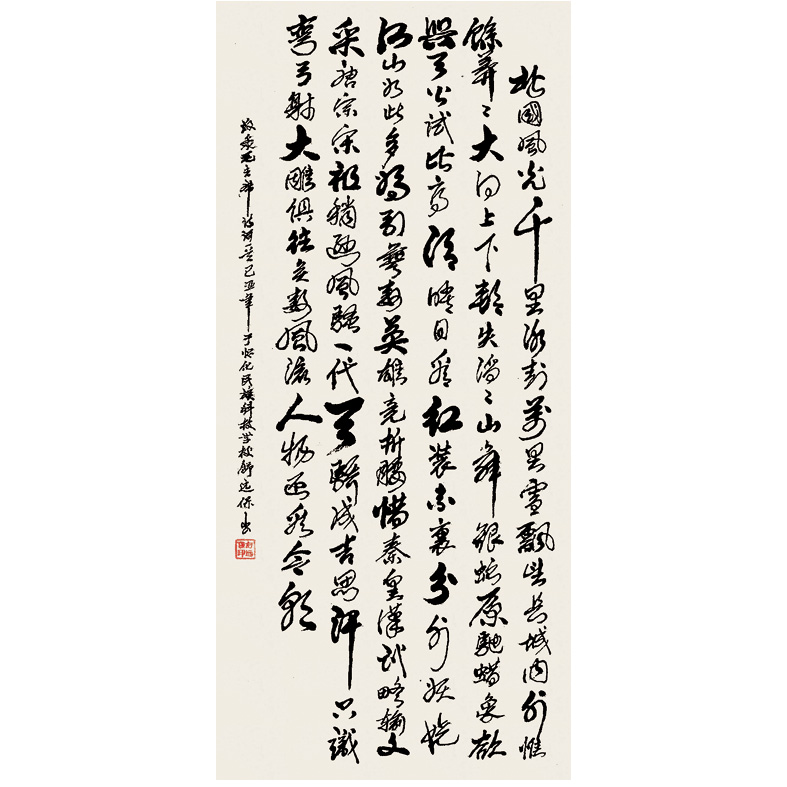 北國風光千里冰封萬里雪飄望長城内外惟
餘莽々大河上下頓失滔々山舞銀蛇原馳蠟象欲
與天公試比高須晴日看紅裝素裹分外妖嬈
江山如此多嬌引無數英雄竞折腰惜秦皇漢武略輸文
采唐宗宋祖稍遜風騷一代天驕成吉思汗只識
彎弓射大雕俱往矣數風流人物还看今朝
敬录毛主席诗词一首己亥年于怀化民族科技学校舒远保书